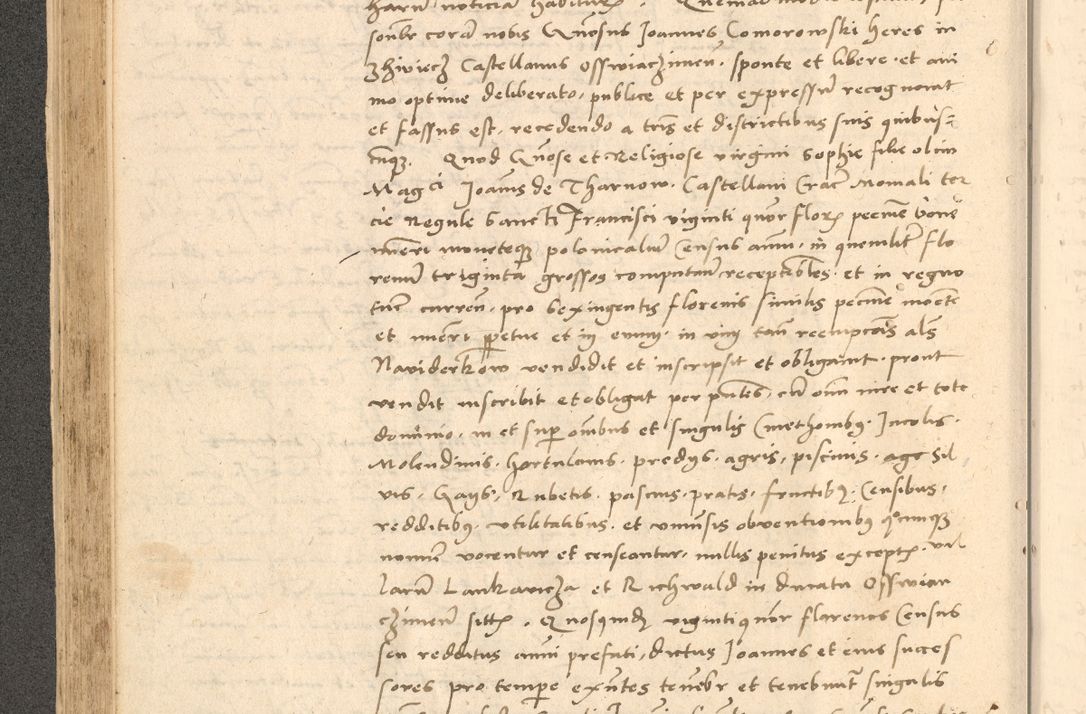 sonbr corã nobis Gñosus Joannes Comorowski heres in
Zhiwiecz Castellanus Osswiaczimen. sponte et libere et ani
mo optime deliberato, publice et per expressũ recognovit
et fassus est. recedendo a tr̃is et districtibus suis quibus=
cũqz. Quod Gñose et Religiose virgini Sophie filie olim
Mag ci Joañis de Tharnow. Castellani Crac̃ Moniali ter
cie Regule Sancti Francisci viginti quor florȝ pecunie bone
numeri moneteqz polonicaliũ Census annui, in quemlit̃ flo
renũ triginta grossos computan̄ receptibiles et in regno
tunc curren̄. pro Sexingentis florenis similis pecunie monete
et numeri ppetue et in evum. in vim tam̃ reempcõis als̃
Naviderkow vendidit et inscripsit et obligavit. prout
vendit inscribit et obligat per pñtes, cũ omi iure et toto
dominio. in et sup oĩnibus et singulis Cmethonibȝ. Incolis.
Molendinis. hortulanis. predys. agris, piscinis. agc Sil
vis, Gays, Rubetis. pascuis, pratis, fructibȝ. Censibus,
redditibȝ. utilitatibus. et universis obventionibȝ qcunqz
nomine vocentur et censeantur, nullis penitus exceptȝ. vil
larũ Lankavicza et Richwald in ducatu Osswian
czimeñ sitȝ. Quosquidȝ viginti quor florenos Census
seu redditus anni prefati, dictus Joannes et eius succes
sores pro tempe exñtes teñebr et tenebunt̃ singulis